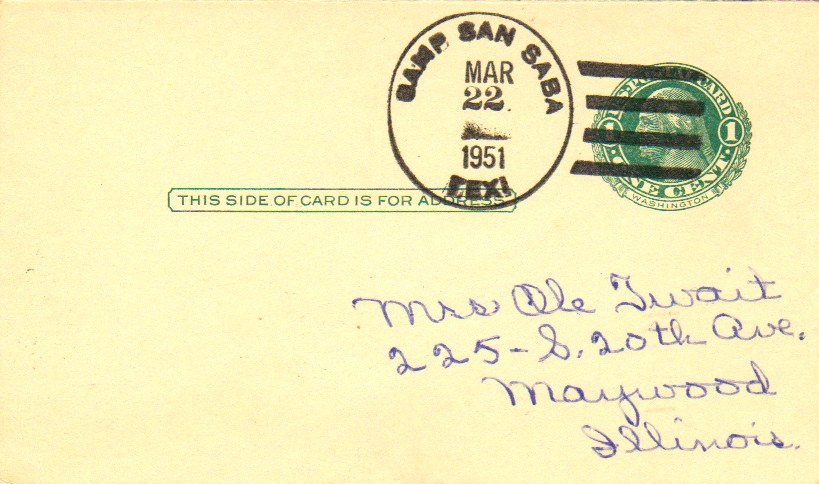 CAMP SAN SABA
MAR
22
1951
TEX.
U.S. POSTAL CARD
1 1
ONE CENT
WASHINGTON
THIS SIDE OF CARD IS FOR ADDRESS
Mrs Ole Twait
225-S. 20th Ave.
Maywood
Illinois.